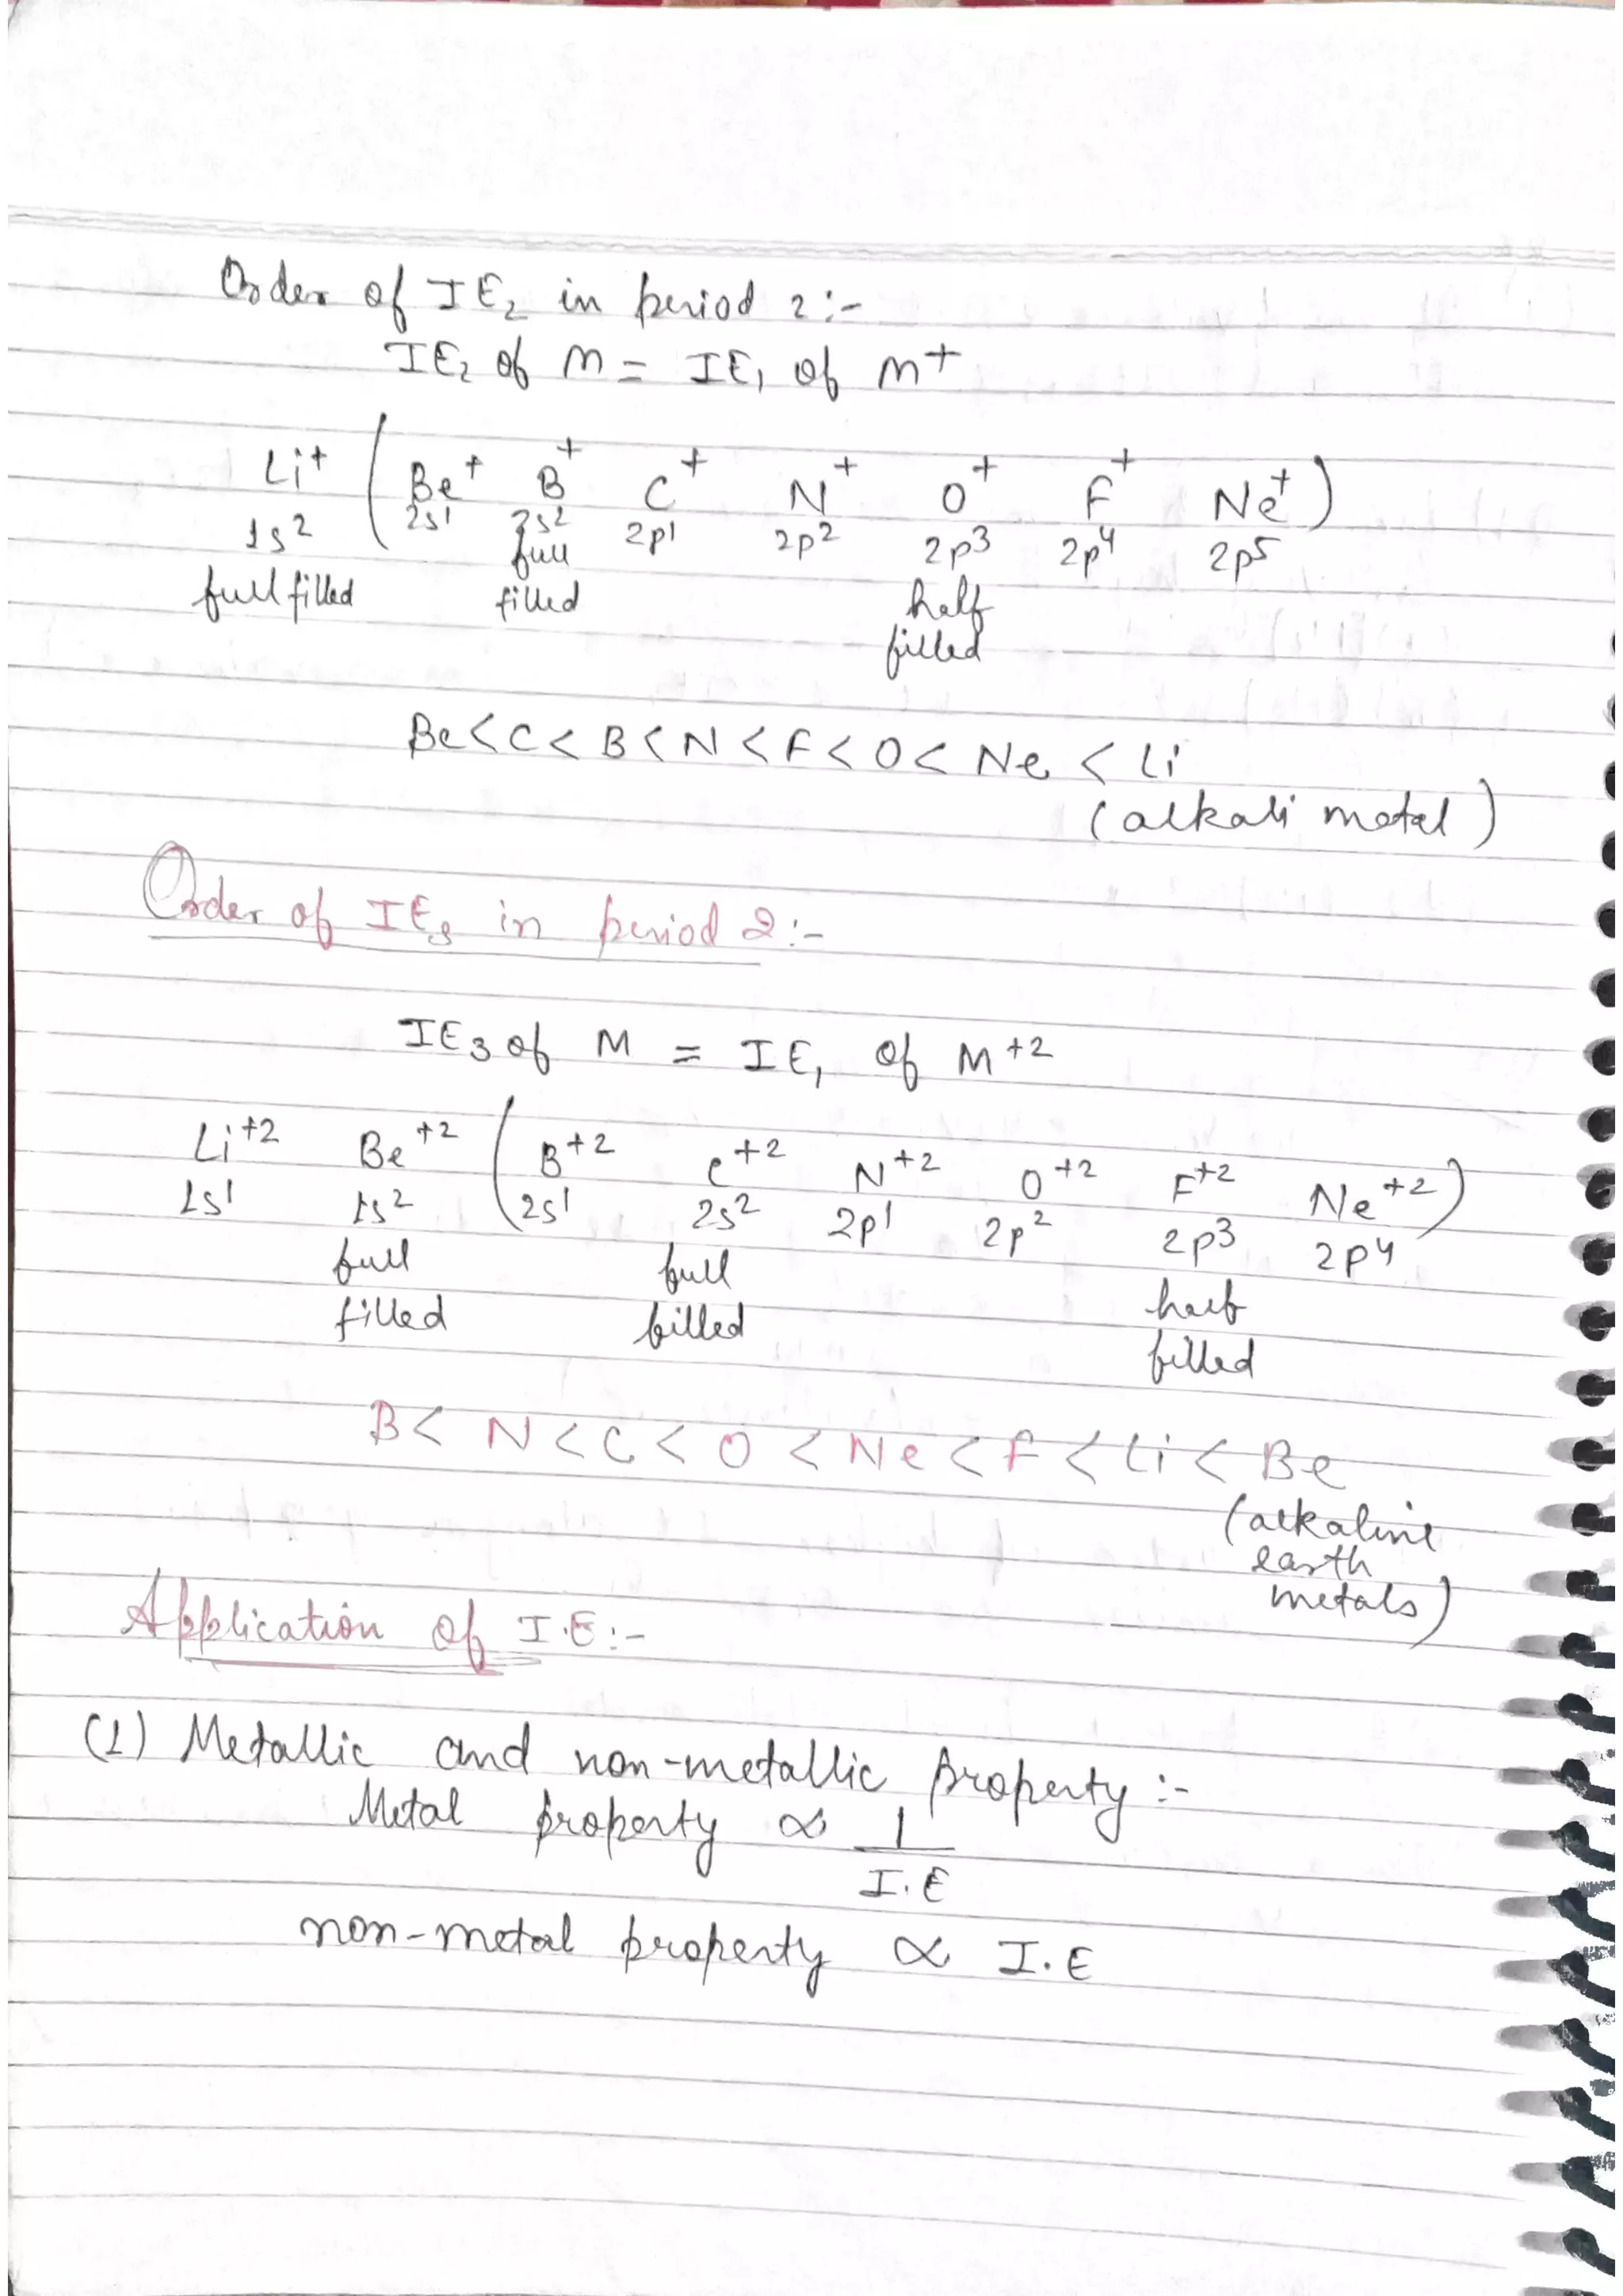 Order of IE₂ in period 2:-
IE₂ of M = IE₁ of M+
Li⁺ (Be⁺ B⁺ C⁺ N⁺ O⁺ F⁺ Ne⁺)
1s² 2s¹ 2s² 2p¹ 2p² 2p³ 2p⁴ 2p⁵
full filled full filled half filled
Be < C < B < N < F < O < Ne < Li
(alkali metal)
Order of IE₃ in period 2:-
IE₃ of M = IE₁ of M⁺²
Li⁺² Be⁺² (B⁺² C⁺² N⁺² O⁺² F⁺² Ne⁺²)
1s¹ 1s² 2s¹ 2s² 2p¹ 2p² 2p³ 2p⁴
full full half
filled filled filled
B < N < C < O < Ne < F < Li < Be
(alkaline
earth
metals)
Application of I.E:-
(1) Metallic and non-metallic property:-
Metal property ∝ 1
I.E
non-metal property ∝ I.E